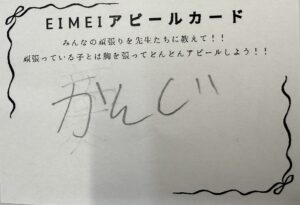 EIMEIアピールカード
みんなの頑張りを先生たちに教えて！！
頑張っている子とは胸を張ってどんどんアピールしよう！！
がんじ